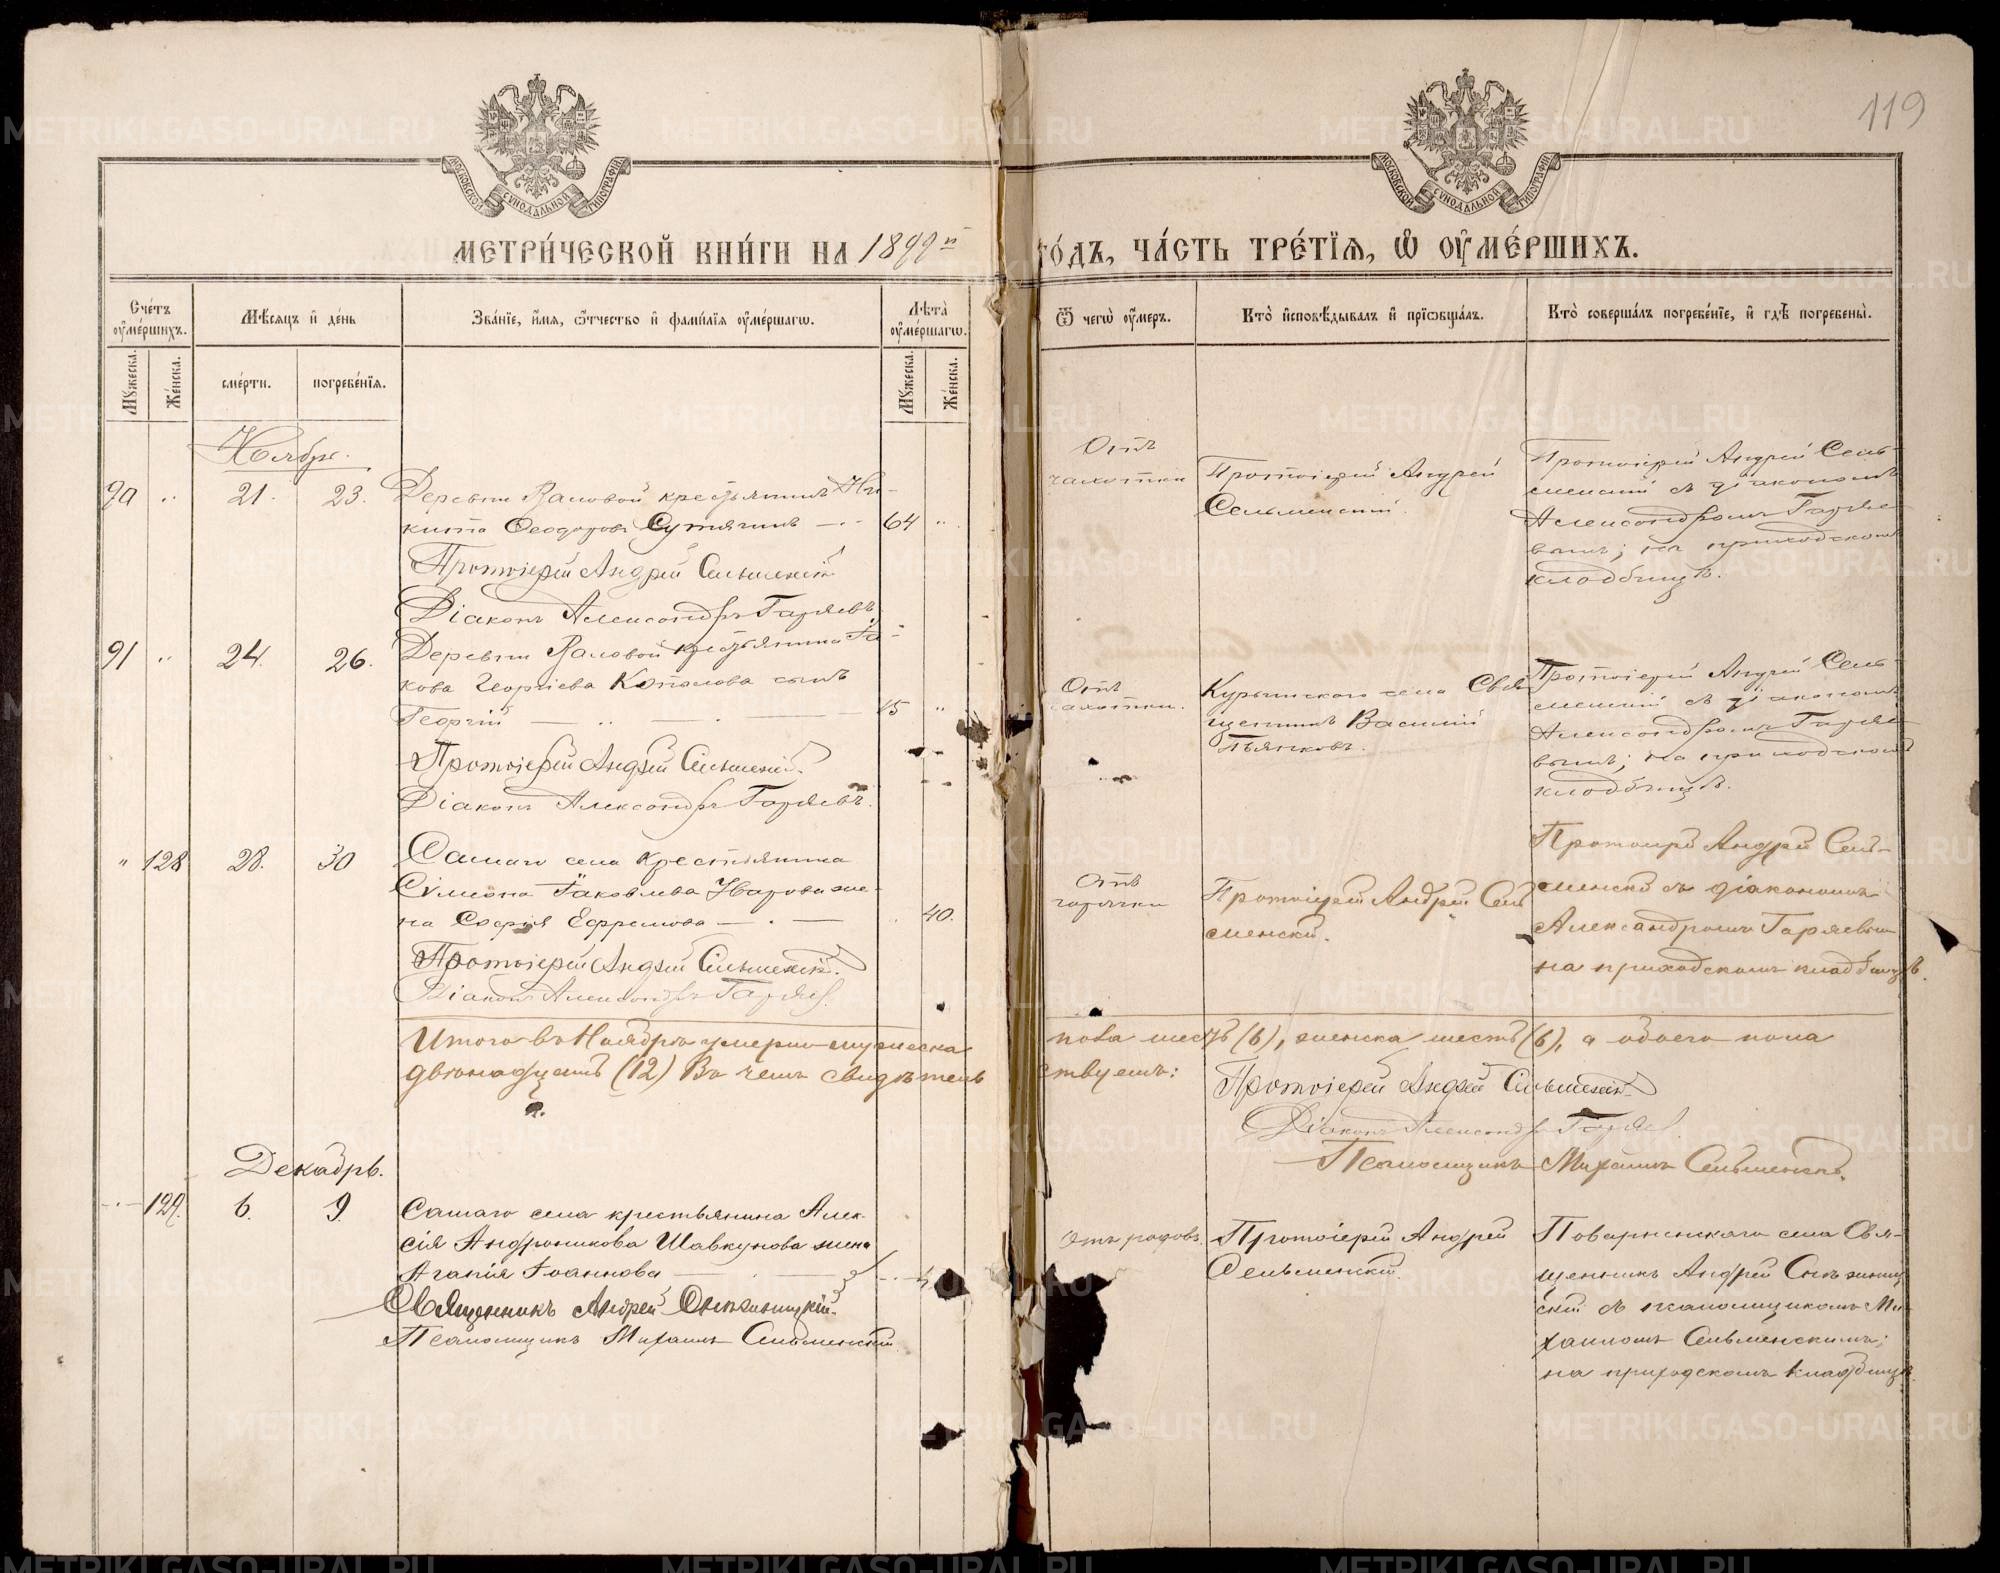 119
МОСКОВСКОЙ СУНОДАЛЬНОЙ ТИПОГРАФІИ
МОСКОВСКОЙ СУНОДАЛЬНОЙ ТИПОГРАФІИ
МЕТРИ́ЧЕСКОЙ КНИ́ГИ НА 1899й
ГО́ДЪ, ЧА́СТЬ ТРЕ́ТІѦ, Ѡ ОУ҆МЕ́РШИХЪ.
Сче́тъ оу҆ме́ршихъ.
Мѣ́сѧцъ и де́нь
Зва́нїе, и҆́мѧ, ѻ҆́тчество и фами́лїѧ оу҆ме́ршагѡ.
Лѣ́та оу҆ме́ршагѡ.
Ѿ чегѡ̀ оу҆́меръ.
Кто̀ и҆сповѣ́дывалъ и прїѡбща́лъ.
Кто̀ соверша́лъ погребе́нїе, и гдѣ̀ погребены̀.
Мꙋ́жеска.
Же́нска.
сме́рти.
погребе́нїѧ.
Мꙋ́жеска.
Же́нска.
Ноябрь.
90 „ 21. 23. Деревни Валовой крестьянинъ Ни-
кита Ѳеодоровъ Сутягинъ 64 „
Протоіерей Андрей Сельменскій
Діаконъ Александръ Гаряевъ.
Отъ
чахотки
Протоіерей Андрей
Сельменскій.
Протоіерей Андрей Сель-
менскій съ діакономъ
Александромъ Гаряе-
вымъ; на приходскомъ
кладбищѣ.
91 „ 24. 26. Деревни Валовой крестьянина Іа-
кова Георгіева Копалова сынъ
Георгій 15 „
Протоіерей Андрей Сельменскій.
Діаконъ Александръ Гаряевъ.
Отъ
чахотки.
Курьинскаго села Свя-
щенникъ Василій
Пьянковъ.
Протоіерей Андрей Сель-
менскій съ діакономъ
Александромъ Гаряе-
вымъ; на приходскомъ
кладбищѣ.
„ 128 28. 30 Самаго села крестьянина
Сѵмеона Іаковлева Уварова же-
на Софія Ефремова 40.
Протоіерей Андрей Сельменскій.
Діаконъ Александръ Гаряев.
Отъ
горячки
Протоіерей Андрей Сель
менскій.
Протоіерей Андрей Сель-
менскій съ діакономъ
Александромъ Гаряевым
на приходскомъ кладбищѣ.
Итого въ Ноябрѣ умерло мужеска
пола шесть (6), женска шесть (6), а обоего пола
двѣнадцать (12) Въ чемъ свидѣтель
ствуемъ:
Протоіерей Андрей Сельменскій
Діаконъ Александръ Гаряев.
Псаломщикъ Михаилъ Сельменскій.
Декабрь.
129. 6. 9. Самаго села крестьянина Алек-
сія Андроникова Шавкунова жена
Агапія Іоаннова
Священникъ Андрей
Псаломщикъ Михаилъ Сельменскій.
Отъ родовъ.
Протоіерей Андрей
Сельменскій.
Поваренскаго села Свя-
щенникъ Андрей
скій съ псаломщикомъ Ми-
хаиломъ Сельменскимъ;
на приходскомъ кладбищѣ.
METRIKI.GASO-URAL.RU